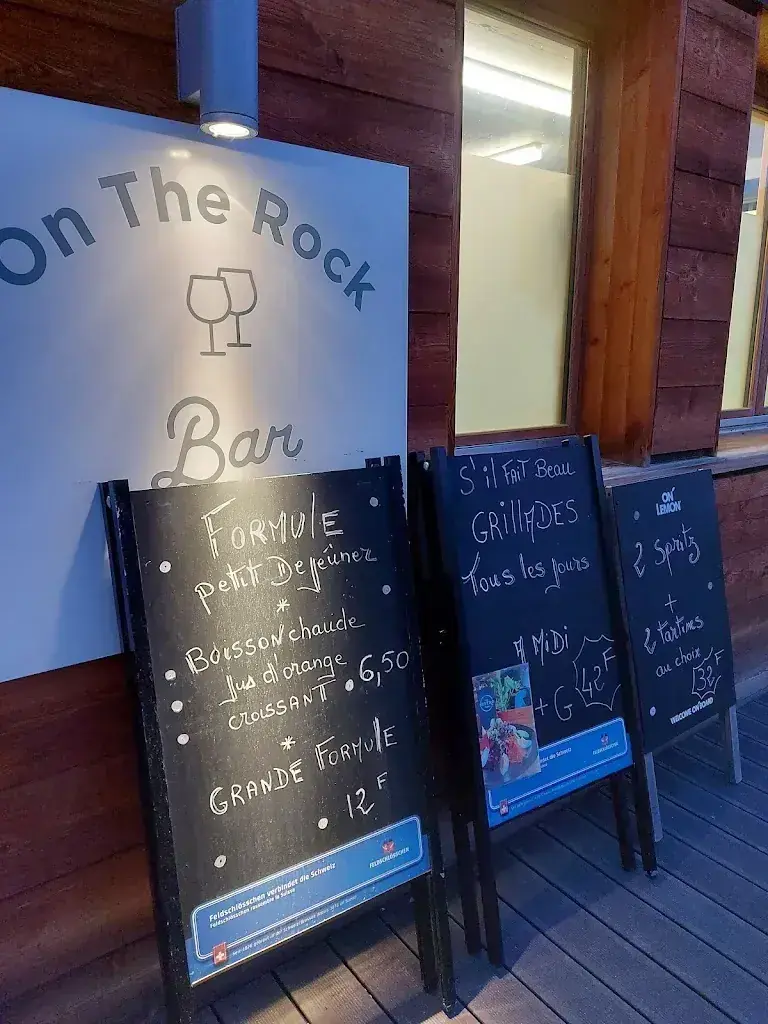 On The Rock
Bar
FORMULE
petit Dejeûner
*
BOISSON chaude
jus d'orange
croissant . 6,50
*
GRANDE FORMULE
12 F
Feldschlösschen verbindet die Schweiz
FELDSCHLÖSSCHEN
S'il FAIT BEAU
GRILLADES
Tous les jours
A MiDi
+ G
42 F
FELDSCHLÖSSCHEN
ON LEMON
2 Spritz
+
2 tartines
au choix
32 F
WELCOME ON BOARD